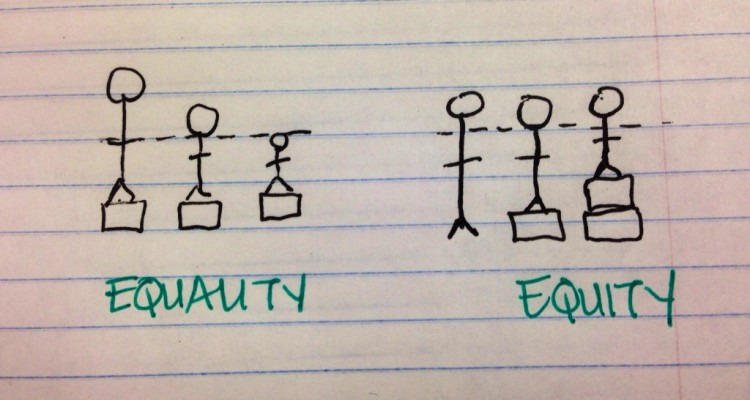 EQUALITY
EQUITY